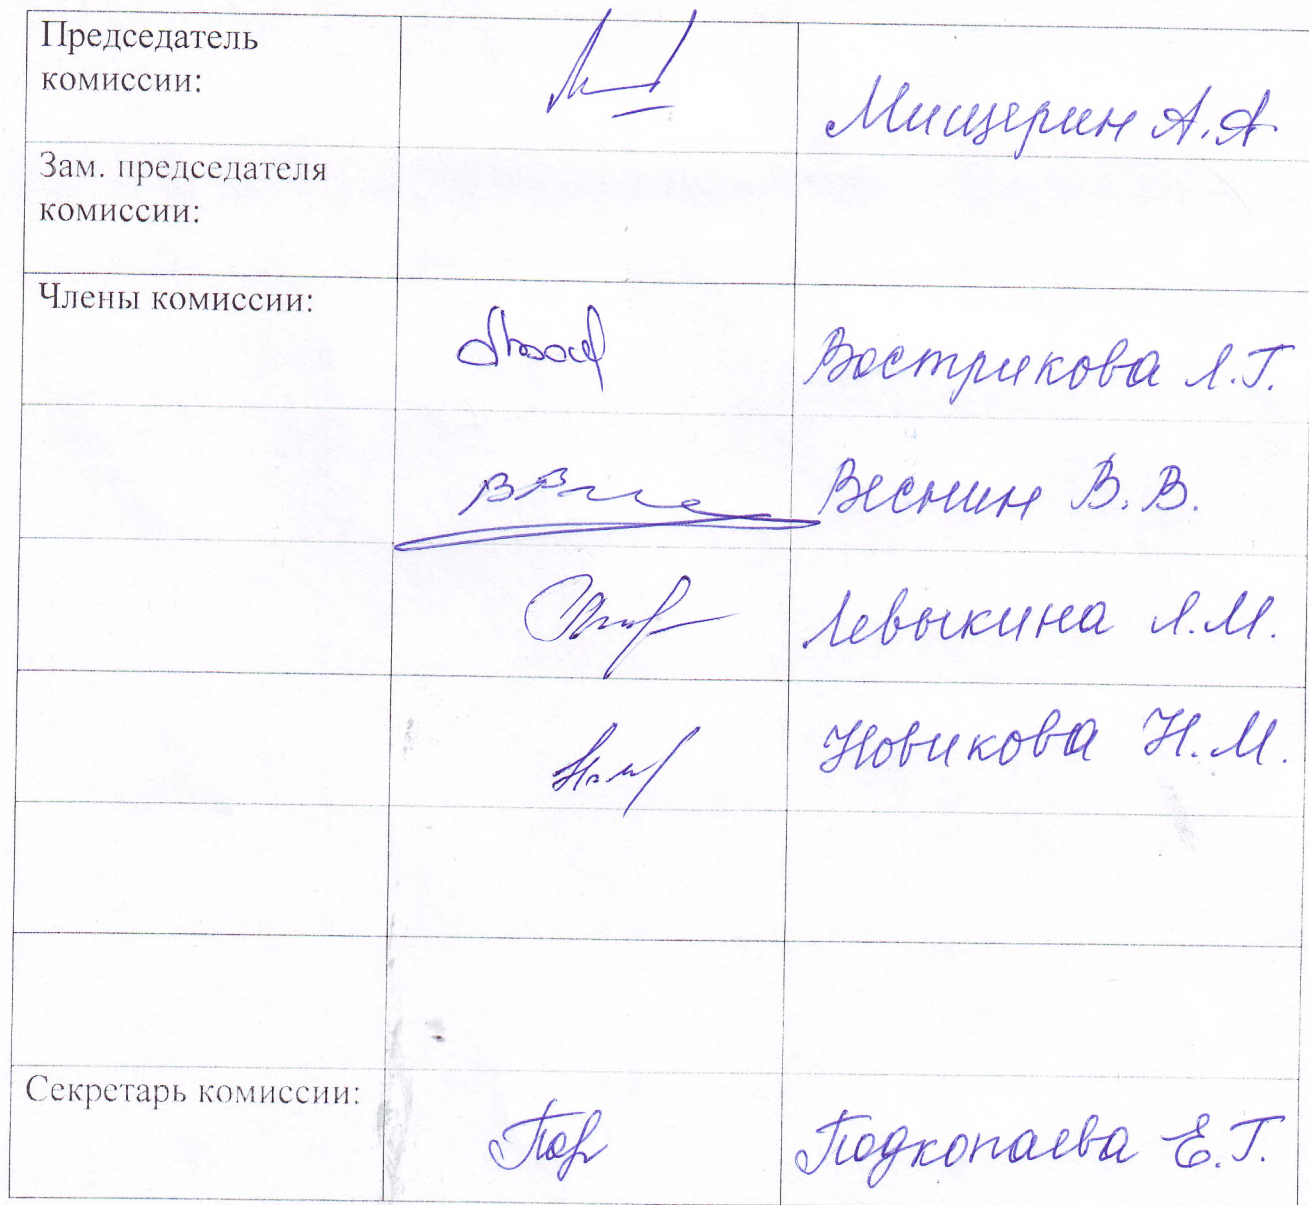 Председатель
комиссии:
Мищерин А.А
Зам. председателя
комиссии:
Члены комиссии:
Вострикова Л.Г.
Веснин В.В.
Левыкина Л.М.
Новикова Н.М.
Секретарь комиссии:
Подкопаева Е.Г.